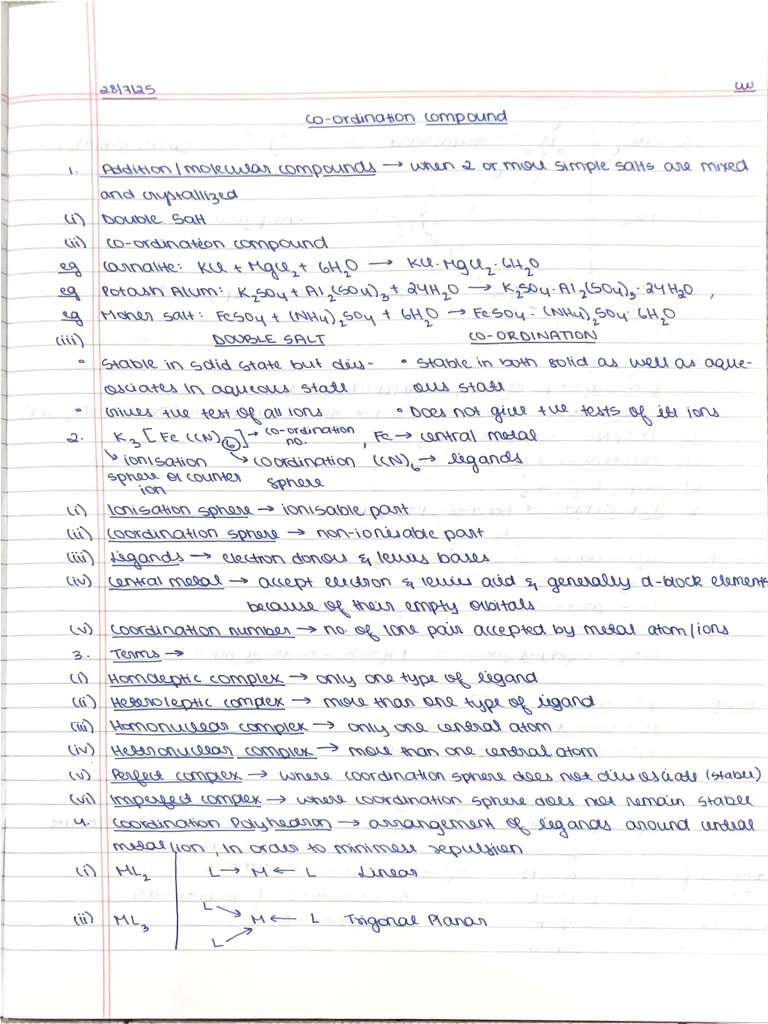 28/7/25
CW
Co-ordination Compound
1. Addition/molecular compounds → when 2 or more simple salts are mixed
and crystallized
(i) Double Salt
(ii) Co-ordination compound
eg Carnalite: KCl + MgCl₂ + 6H₂O → KCl·MgCl₂·6H₂O
eg Potash Alum: K₂SO₄ + Al₂(SO₄)₃ + 24H₂O → K₂SO₄·Al₂(SO₄)₃·24H₂O,
eg Moher Salt: FeSO₄ + (NH₄)₂SO₄ + 6H₂O → FeSO₄·(NH₄)₂SO₄·6H₂O
(iii) DOUBLE SALT CO-ORDINATION
• Stable in solid state but diss- • Stable in both solid as well as aque-
osciates in aqueous state ous state
• Gives +ve test of all ions • Does not give +ve tests of its ions
2. K₃[Fe(CN)₆] → co-ordination no., Fe → central metal
↳ ionisation ↳ coordination (CN)₆ → ligands
sphere or counter sphere
ion
(i) Ionisation sphere → ionisable part
(ii) Coordination sphere → non-ionisable part
(iii) Ligands → electron donors & lewis bases
(iv) Central metal → accept electron & lewis acid & generally d-block element
because of their empty orbitals
(v) Coordination number → no. of lone pair accepted by metal atom/ions
3. Terms →
(i) Homoleptic complex → only one type of ligand
(ii) Heteroleptic complex → more than one type of ligand
(iii) Homonuclear complex → only one central atom
(iv) Heteronuclear complex → more than one central atom
(v) Perfect complex → where coordination sphere does not dissosciate (stable)
(vi) Imperfect complex → where coordination sphere does not remain stable
4. Coordination Polyhedron → arrangement of ligands around central
metal/ion, in order to minimese repulsion
(i) ML₂ L → M ← L Linear
L
(ii) ML₃ M ← L Trigonal Planar
L